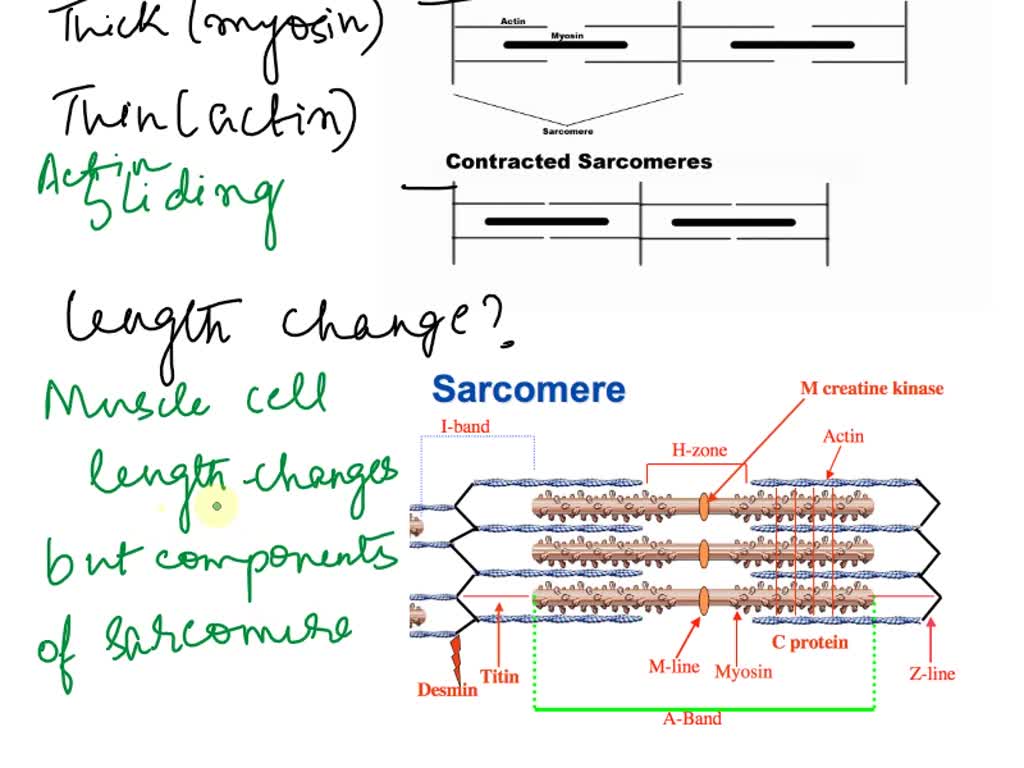 Thick (myosin)
Actin
Myosin
Thin (actin)
Sarcomere
Contracted Sarcomeres
Actin
Sliding
Length change?
Sarcomere
M creatine kinase
Muscle cell
I-band
Actin
H-zone
length changes
but components
of sarcomere
C protein
M-line
Myosin
Titin
Z-line
Desmin
A-Band